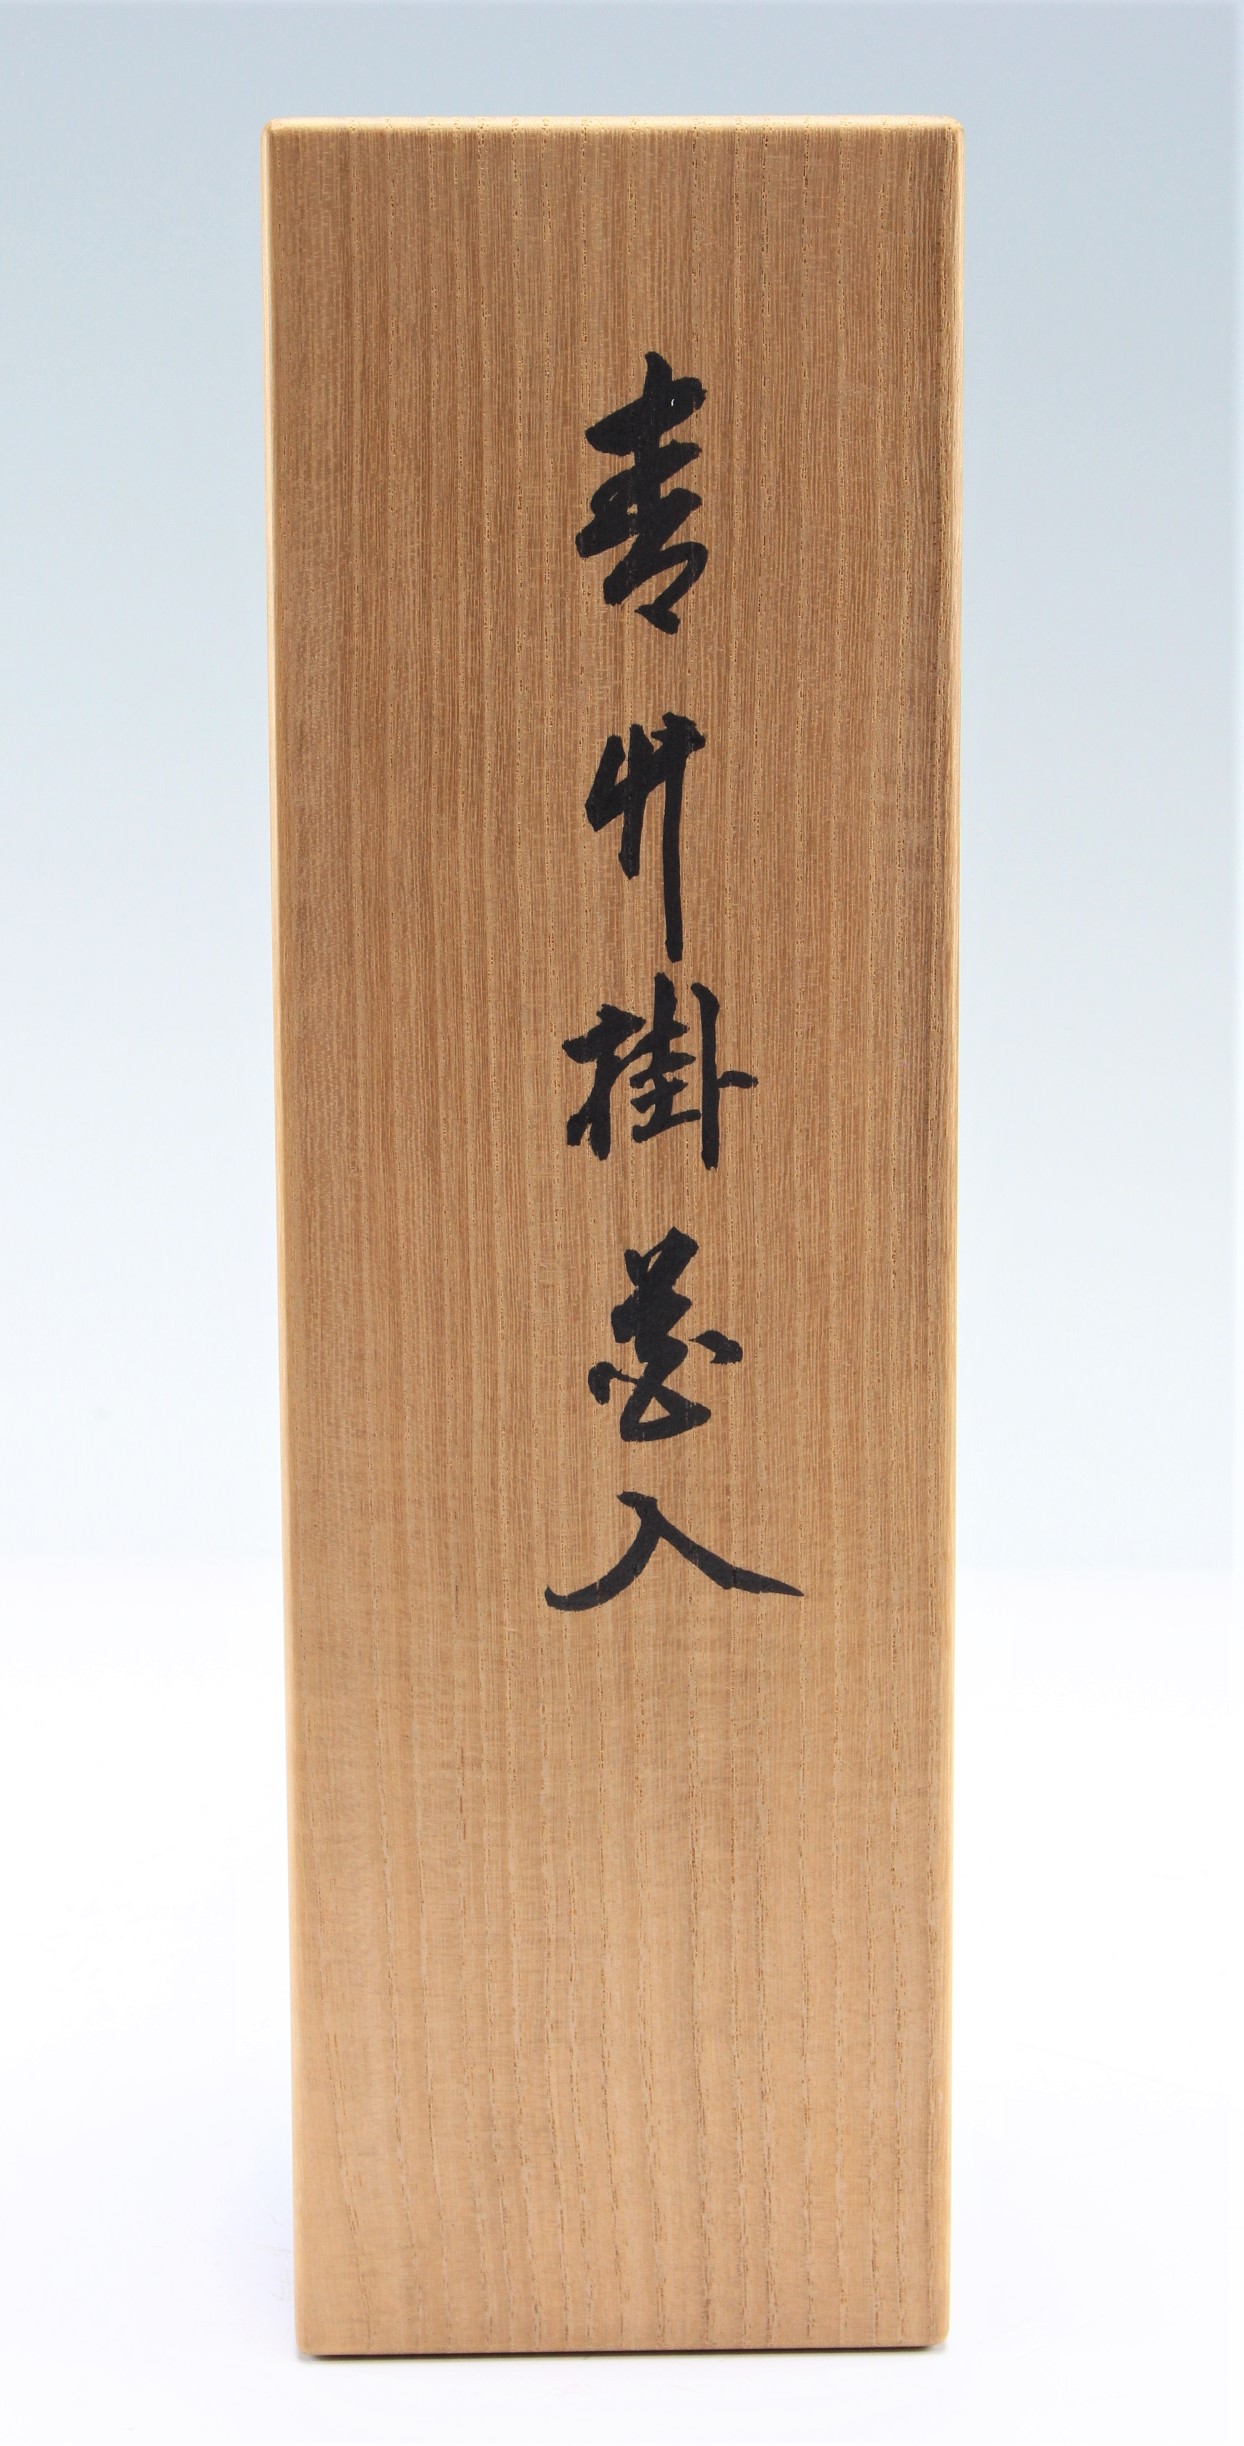 青竹掛花入